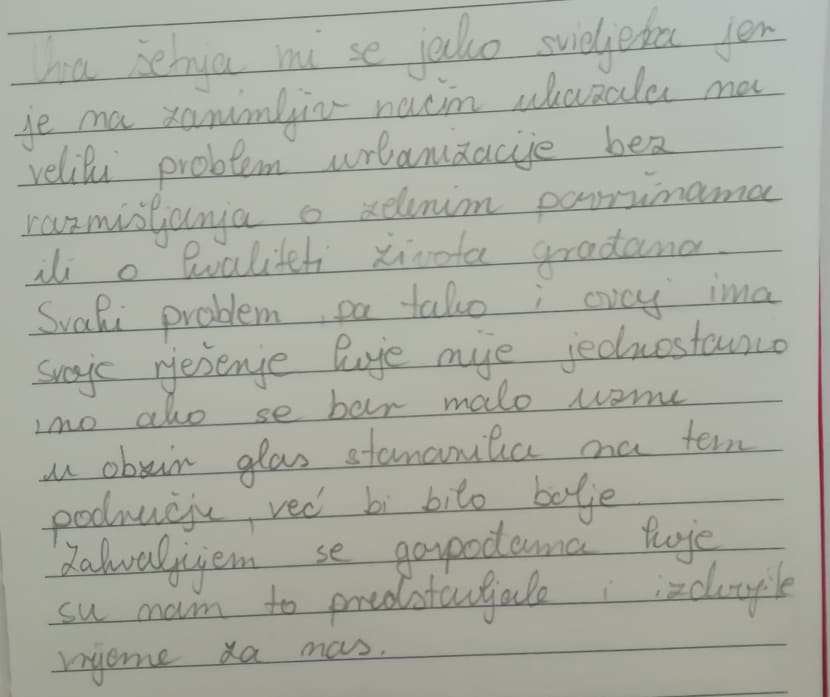 Ova šetnja mi se jako svidjela jer
je na zanimljiv način ukazala na
veliki problem urbanizacije bez
razmišljanja o zelenim površinama
ili o kvaliteti života građana.
Svaki problem, pa tako i ovaj ima
svoje rješenje koje nije jednostavno
no ako se bar malo uzme
u obzir glas stanovnika na tem
području, već bi bilo bolje
Zahvaljujem se gospođama koje
su nam to predstavljale i izdvojile
vrijeme za nas.